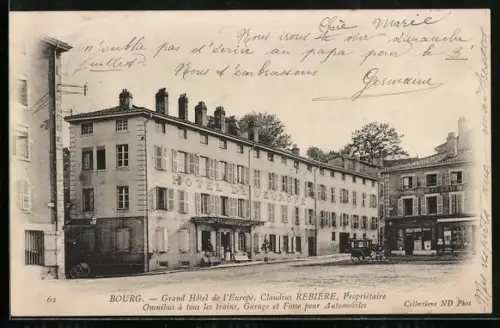 Chère Marie
Nous irons te voir dimanche
n'oublie pas d'écrire au papa pour le 3
juillet.
Nous t'embrassons
Germaine
HÔTEL DE L'EUROPE
60 BOURG. — Grand Hôtel de l'Europe, Claudius REBIÈRE, Propriétaire
Omnibus à tous les trains, Garage et Fosse pour Automobiles
Collections ND Phot